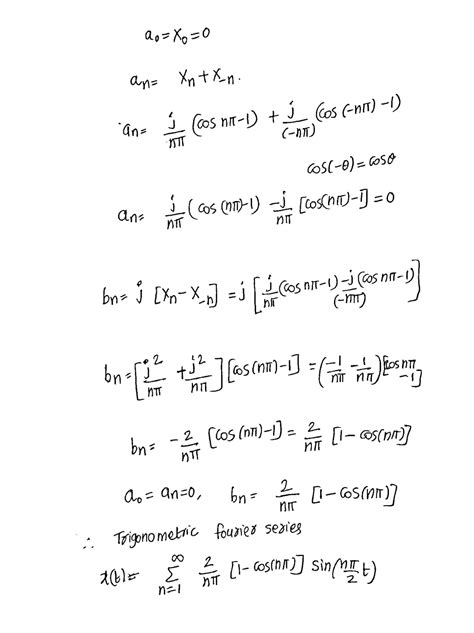 a₀ = X₀ = 0
aₙ = Xₙ + X₋ₙ.
aₙ = j/nπ (cos nπ - 1) + j/(-nπ) (cos (-nπ) - 1)
cos(-θ) = cosθ
aₙ = j/nπ (cos (nπ) - 1) - j/nπ [cos(nπ) - 1] = 0
bₙ = j [Xₙ - X₋ₙ] = j [j/nπ (cos nπ - 1) - j/(-nπ) (cos nπ - 1)]
bₙ = [j²/nπ + j²/nπ] [cos(nπ) - 1] = (-1/nπ - 1/nπ) [cos nπ - 1]
bₙ = -2/nπ [cos (nπ) - 1] = 2/nπ [1 - cos(nπ)]
a₀ = aₙ = 0, bₙ = 2/nπ [1 - cos(nπ)]
∴ Trigonometric fourier series
x(t) = ∑ₙ₌₁^∞ 2/nπ [1 - cos(nπ)] sin(nπ/2 t)